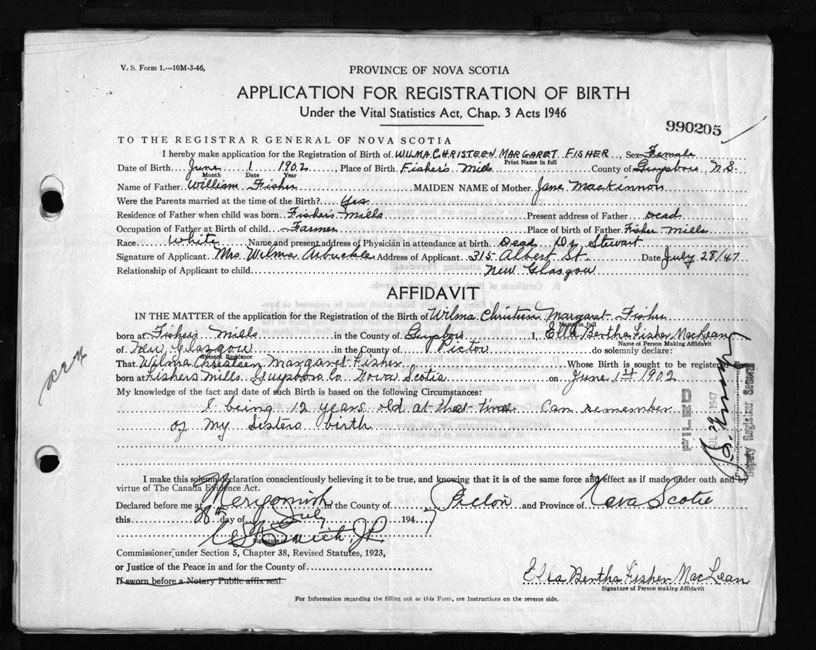 V. S. Form 1.—10M-3-46,
PROVINCE OF NOVA SCOTIA
APPLICATION FOR REGISTRATION OF BIRTH
Under the Vital Statistics Act, Chap. 3 Acts 1946
990205
TO THE REGISTRAR GENERAL OF NOVA SCOTIA
I hereby make application for the Registration of Birth of WILMA CHRISTEEN MARGARET FISHER, Sex Female
Print Name in full
Date of Birth June 1 1902, Place of Birth Fisher's Mills County of Guysboro, N.S.
Month Date Year
Name of Father William Fisher MAIDEN NAME of Mother Jane MacKinnon
Were the Parents married at the time of the Birth? Yes
Residence of Father when child was born Fisher's Mills Present address of Father Dead
Occupation of Father at Birth of child Farmer Place of birth of Father Fisher Mills
Race White Name and present address of Physician in attendance at birth Dead Dr Stewart
Signature of Applicant Mrs Wilma Arbuckle Address of Applicant 315 Albert St. Date July 28/47
Relationship of Applicant to child New Glasgow
AFFIDAVIT
IN THE MATTER of the application for the Registration of the Birth of Wilma Christeen Margaret Fisher
Name in full
born at Fishers Mills in the County of Guysboro I, Ella Bertha Fisher MacLean
Name of Person Making Affidavit
of New Glasgow in the County of Pictou do solemnly declare:
Present Residence
That Wilma Christeen Margaret Fisher Whose Birth is sought to be registered
born at Fishers Mills, Guysboro Co Nova Scotia on June 1st 1902
My knowledge of the fact and date of such Birth is based on the following Circumstances:
I being 12 years old at that time Can remember
of my sisters birth
FILED
JUL 29 1947
Deputy Registrar General
I make this solemn declaration conscientiously believing it to be true, and knowing that it is of the same force and effect as if made under oath and
virtue of The Canada Evidence Act.
Declared before me at Merigomish in the County of Pictou and Province of Nova Scotia
this 28th day of July 1947
Signature
Commissioner under Section 5, Chapter 38, Revised Statutes, 1923,
or Justice of the Peace in and for the County of
If sworn before a Notary Public affix seal.
Ella Bertha Fisher MacLean
Signature of Person making Affidavit
For Information regarding the filling out of this Form, see Instructions on the reverse side.